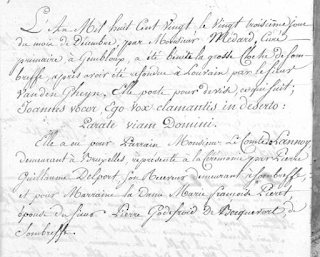 L'An Mil huit Cent Vingt, le Vingt troisième jour
du mois de Décembre, par Monsieur Médard, Curé
primaire à Gembloux, a été bénite la grosse Cloche de Som-
breffe, après avoir été refondue à Louvain par le Sieur
Vanden Gheyn. Elle porte pour devise ce qui suit;
Joannes vocor Ego vox clamantis in deserto:
Parate viam Domini.
Elle a eu pour Parrain Monsieur Le Comte de Lannoy
demeurant à Bruxelles, représenté à la Cérémonie par Pierre
Guillaume Delport son Receveur demeurant à Sombreffe;
et pour Marraine la Dame Marie françoise Pieret,
épouse du Sieur Pierre Godefroid de Becquevort, de
Sombreffe.